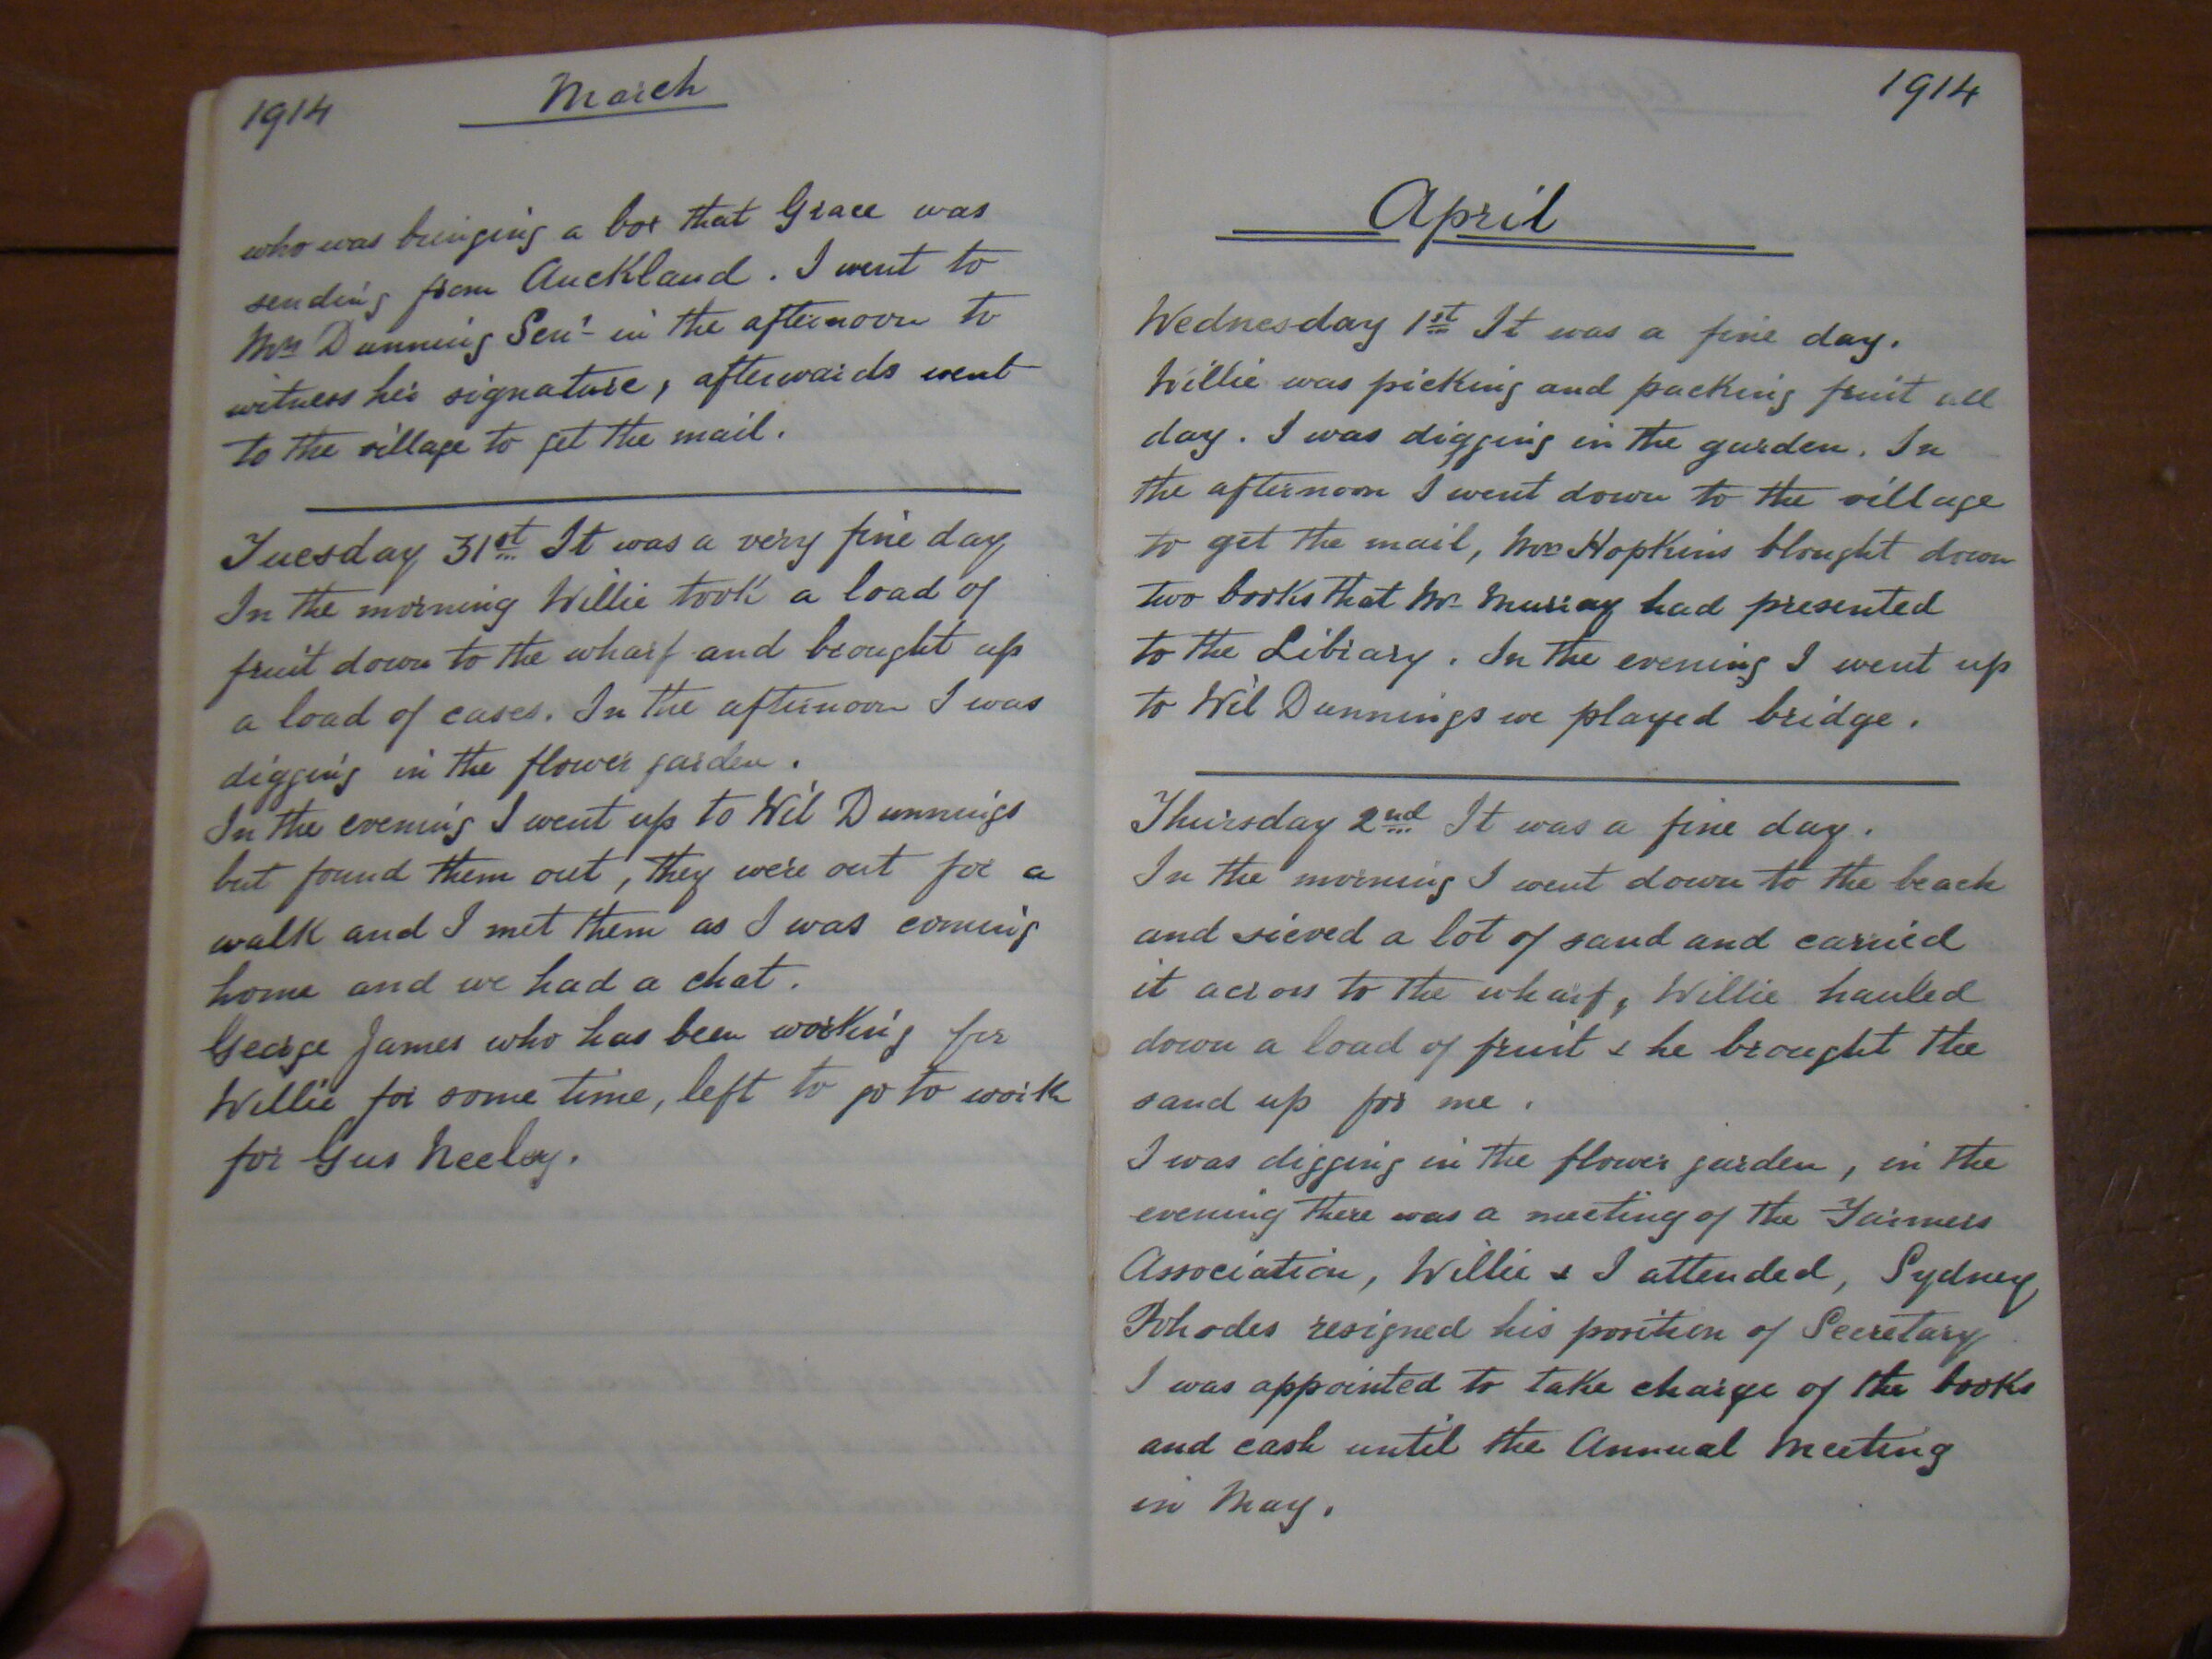 1914
March
who was bringing a box that Grace was
sending from Auckland. I went to
Mrs Dunning Senr in the afternoon to
witness her signature, afterwards went
to the village to get the mail.
Tuesday 31st It was a very fine day
In the morning Willie took a load of
fruit down to the wharf and brought up
a load of cases. In the afternoon I was
digging in the flower garden.
In the evening I went up to Wil Dunnings
but found them out, they were out for a
walk and I met them as I was coming
home and we had a chat.
George James who has been working for
Willie for some time, left to go to work
for Gus Neeley.
1914
April
Wednesday 1st It was a fine day.
Willie was picking and packing fruit all
day. I was digging in the garden. In
the afternoon I went down to the village
to get the mail, Mrs Hopkins blought down
two books that Mr Murray had presented
to the Library. In the evening I went up
to Wil Dunnings we played bridge.
Thursday 2nd It was a fine day.
In the morning I went down to the beach
and sieved a lot of sand and carried
it across to the wharf, Willie hauled
down a load of fruit & he brought the
sand up for me.
I was digging in the flower garden, in the
evening there was a meeting of the Farmers
Association, Willie & I attended, Sydney
Rhodes resigned his position of Secretary
I was appointed to take charge of the books
and cash until the Annual Meeting
in May.